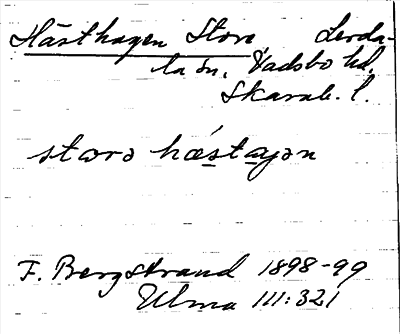 Hästhagen Stora, Lerda-
la sn. Vadsbo hd.
Skarab. l.
storo hǽstagən
F. Bergstrand 1898-99
Ulma 111:321